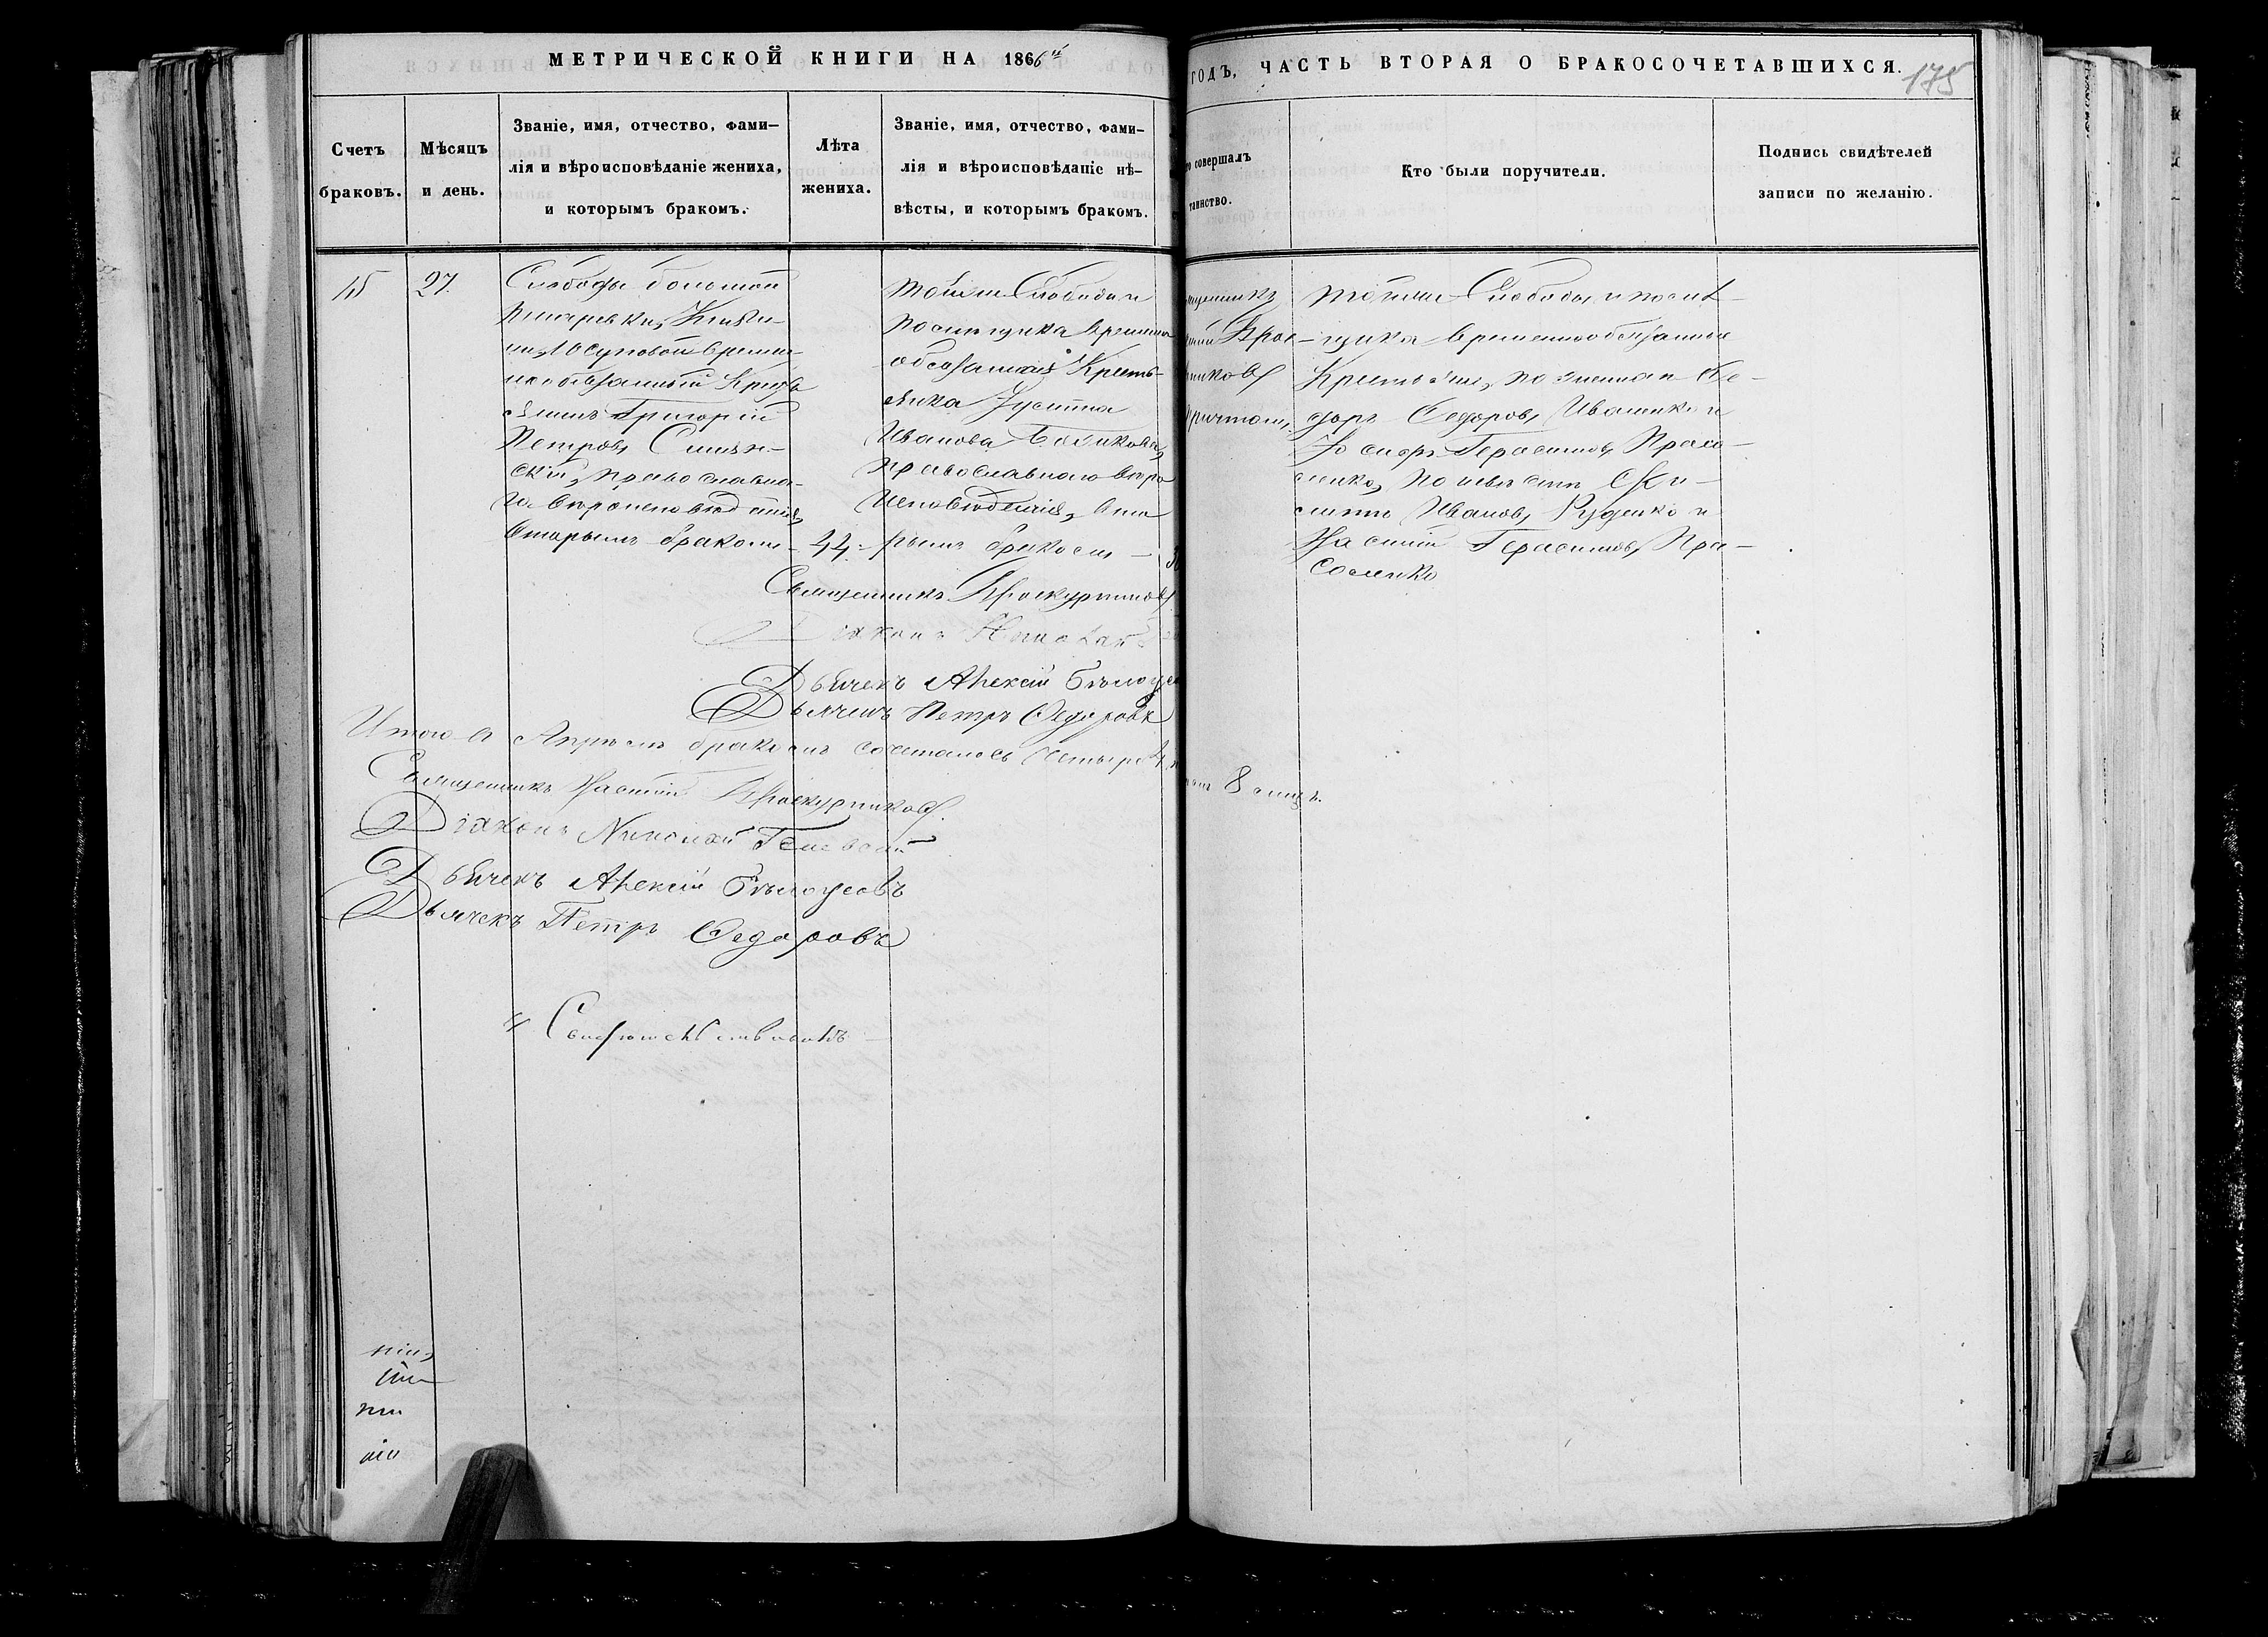 МЕТРИЧЕСКОЙ КНИГИ НА 1866й
ГОДЪ, ЧАСТЬ ВТОРАЯ О БРАКОСОЧЕТАВШИХСЯ.
175
Счетъ
браковъ.
Мѣсяцъ
и день.
Званіе, имя, отчество, фами–
лія и вѣроисповѣданіе жениха,
и которымъ бракомъ.
Лѣта
жениха.
Званіе, имя, отчество, фами–
лія и вѣроисповѣданіе нѣ–
вѣсты, и которымъ бракомъ.
совершалъ
таинство.
Кто были поручители.
Подпись свидѣтелей
записи по желанію.
15
27.
Слободы Большой
Писаревки, Княги–
ни Юсуповой времен–
нообязанный Кресть
янинъ Григорій
Петровъ
православна–
го вѣроисповѣданія,
вторымъ бракомъ
44.
тойже Слободы и
помѣщика временно
обязанная Кресть–
янка Іустина
Иванова
православнаго вѣро
исповѣданія, вто
рымъ бракомъ –
тойже Слободы и помѣ–
щика временнообязанные
Крестьяне, по женихѣ Ѳе–
доръ Ѳедоровъ Ивашенко и
Герасимовъ Прасо–
ленко, по невѣстѣ
Ивановъ Руденко и
Герасимовъ Пра–
соленко
Священникъ Проскурниковъ
Діаконъ
Дьячекъ Алексій Бѣлоус
Дьячекъ Петръ Ѳедоровъ
Итого въ Апрѣлѣ бракомъ сочеталось четыре 4
8 лицъ.
Священникъ Проскурниковъ.
Діаконъ Николай
Дьячекъ Алексій Бѣлоусовъ
Дьячекъ Петръ Ѳедоровъ
Свидѣтельствовалъ